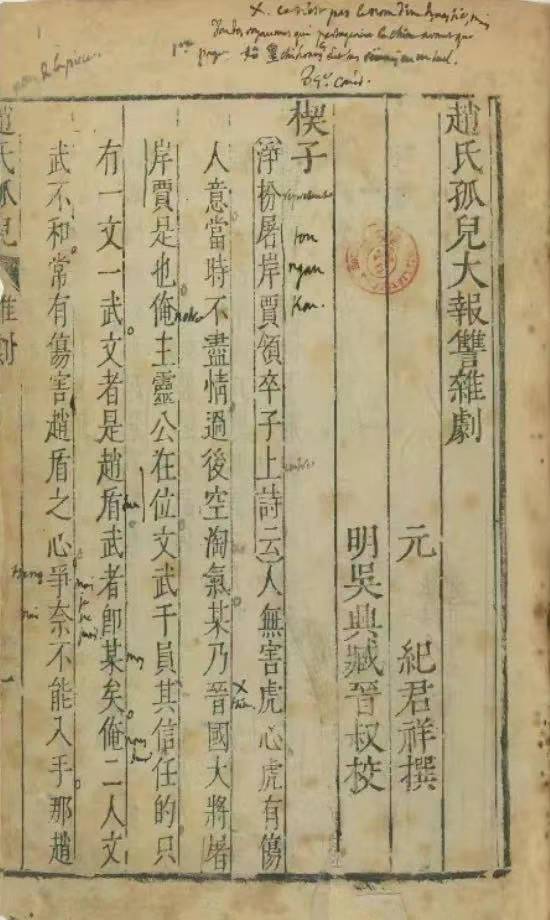 X. ce n'est pas le nom d'une dynastie, mais
l'un des royaumes qui partageaient la Chine avant que
趙氏孤兒大報讐雜劇
元 紀君祥撰
明吳興臧晉叔校
楔子
tou
ngan
Kou.
淨扮屠岸賈領卒子上詩云人無害虎心虎有傷
人意當時不盡情過後空淘氣某乃晉國大將屠
岸賈是也俺主靈公在位文武千員其信任的只
有一文一武文者是趙盾武者卽某矣俺二人文
武不和常有傷害趙盾之心爭奈不能入手那趙
趙氏孤兒 雜劇 一